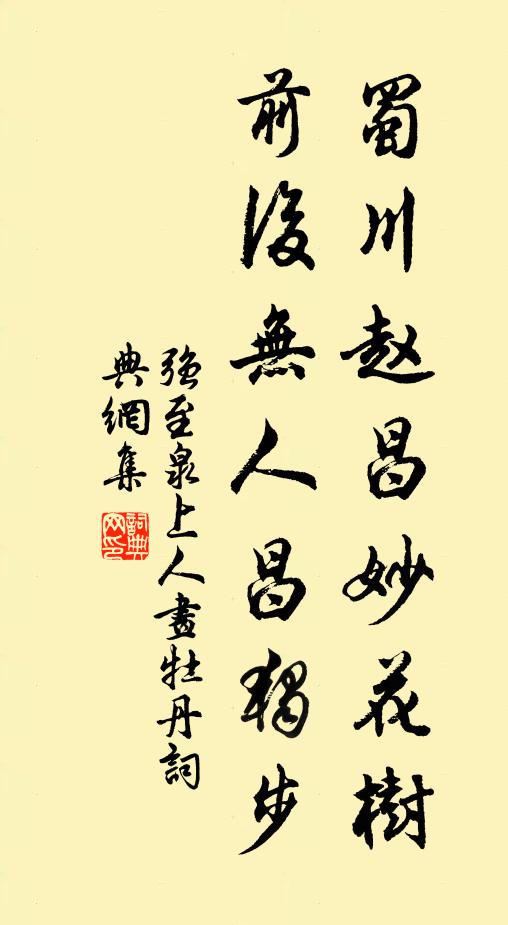 蜀川赵昌妙花樹
前後無人昌獨步
强至泉上人畫牡丹詞
典網集
詞典
网印